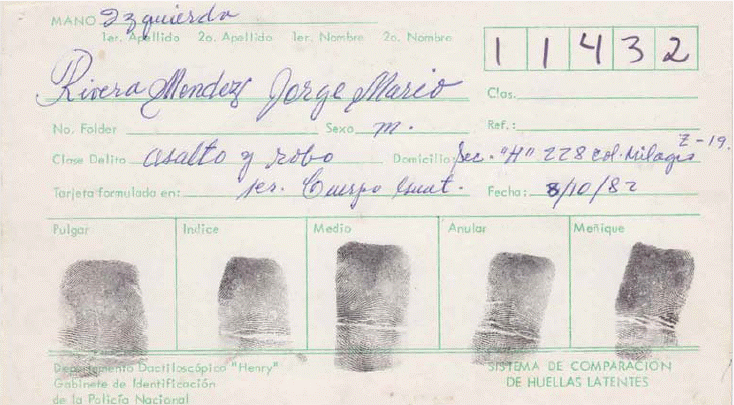 MANO Izquierda
1er. Apellido 2o. Apellido 1er. Nombre 2o. Nombre
11432
Rivera Mendez Jorge Mario
Clas.
No. Folder Sexo m. Ref.:
Clase Delito asalto y robo Domicilio: Sec. "H" 228 Col. Milagro Z-19.
Tarjeta formulada en: 1er. Cuerpo Guat. Fecha: 8/10/82
Pulgar Indice Medio Anular Meñique
Departamento Dactiloscópico "Henry"
Gabinete de Identificación
de la Policía Nacional
SISTEMA DE COMPARACION
DE HUELLAS LATENTES